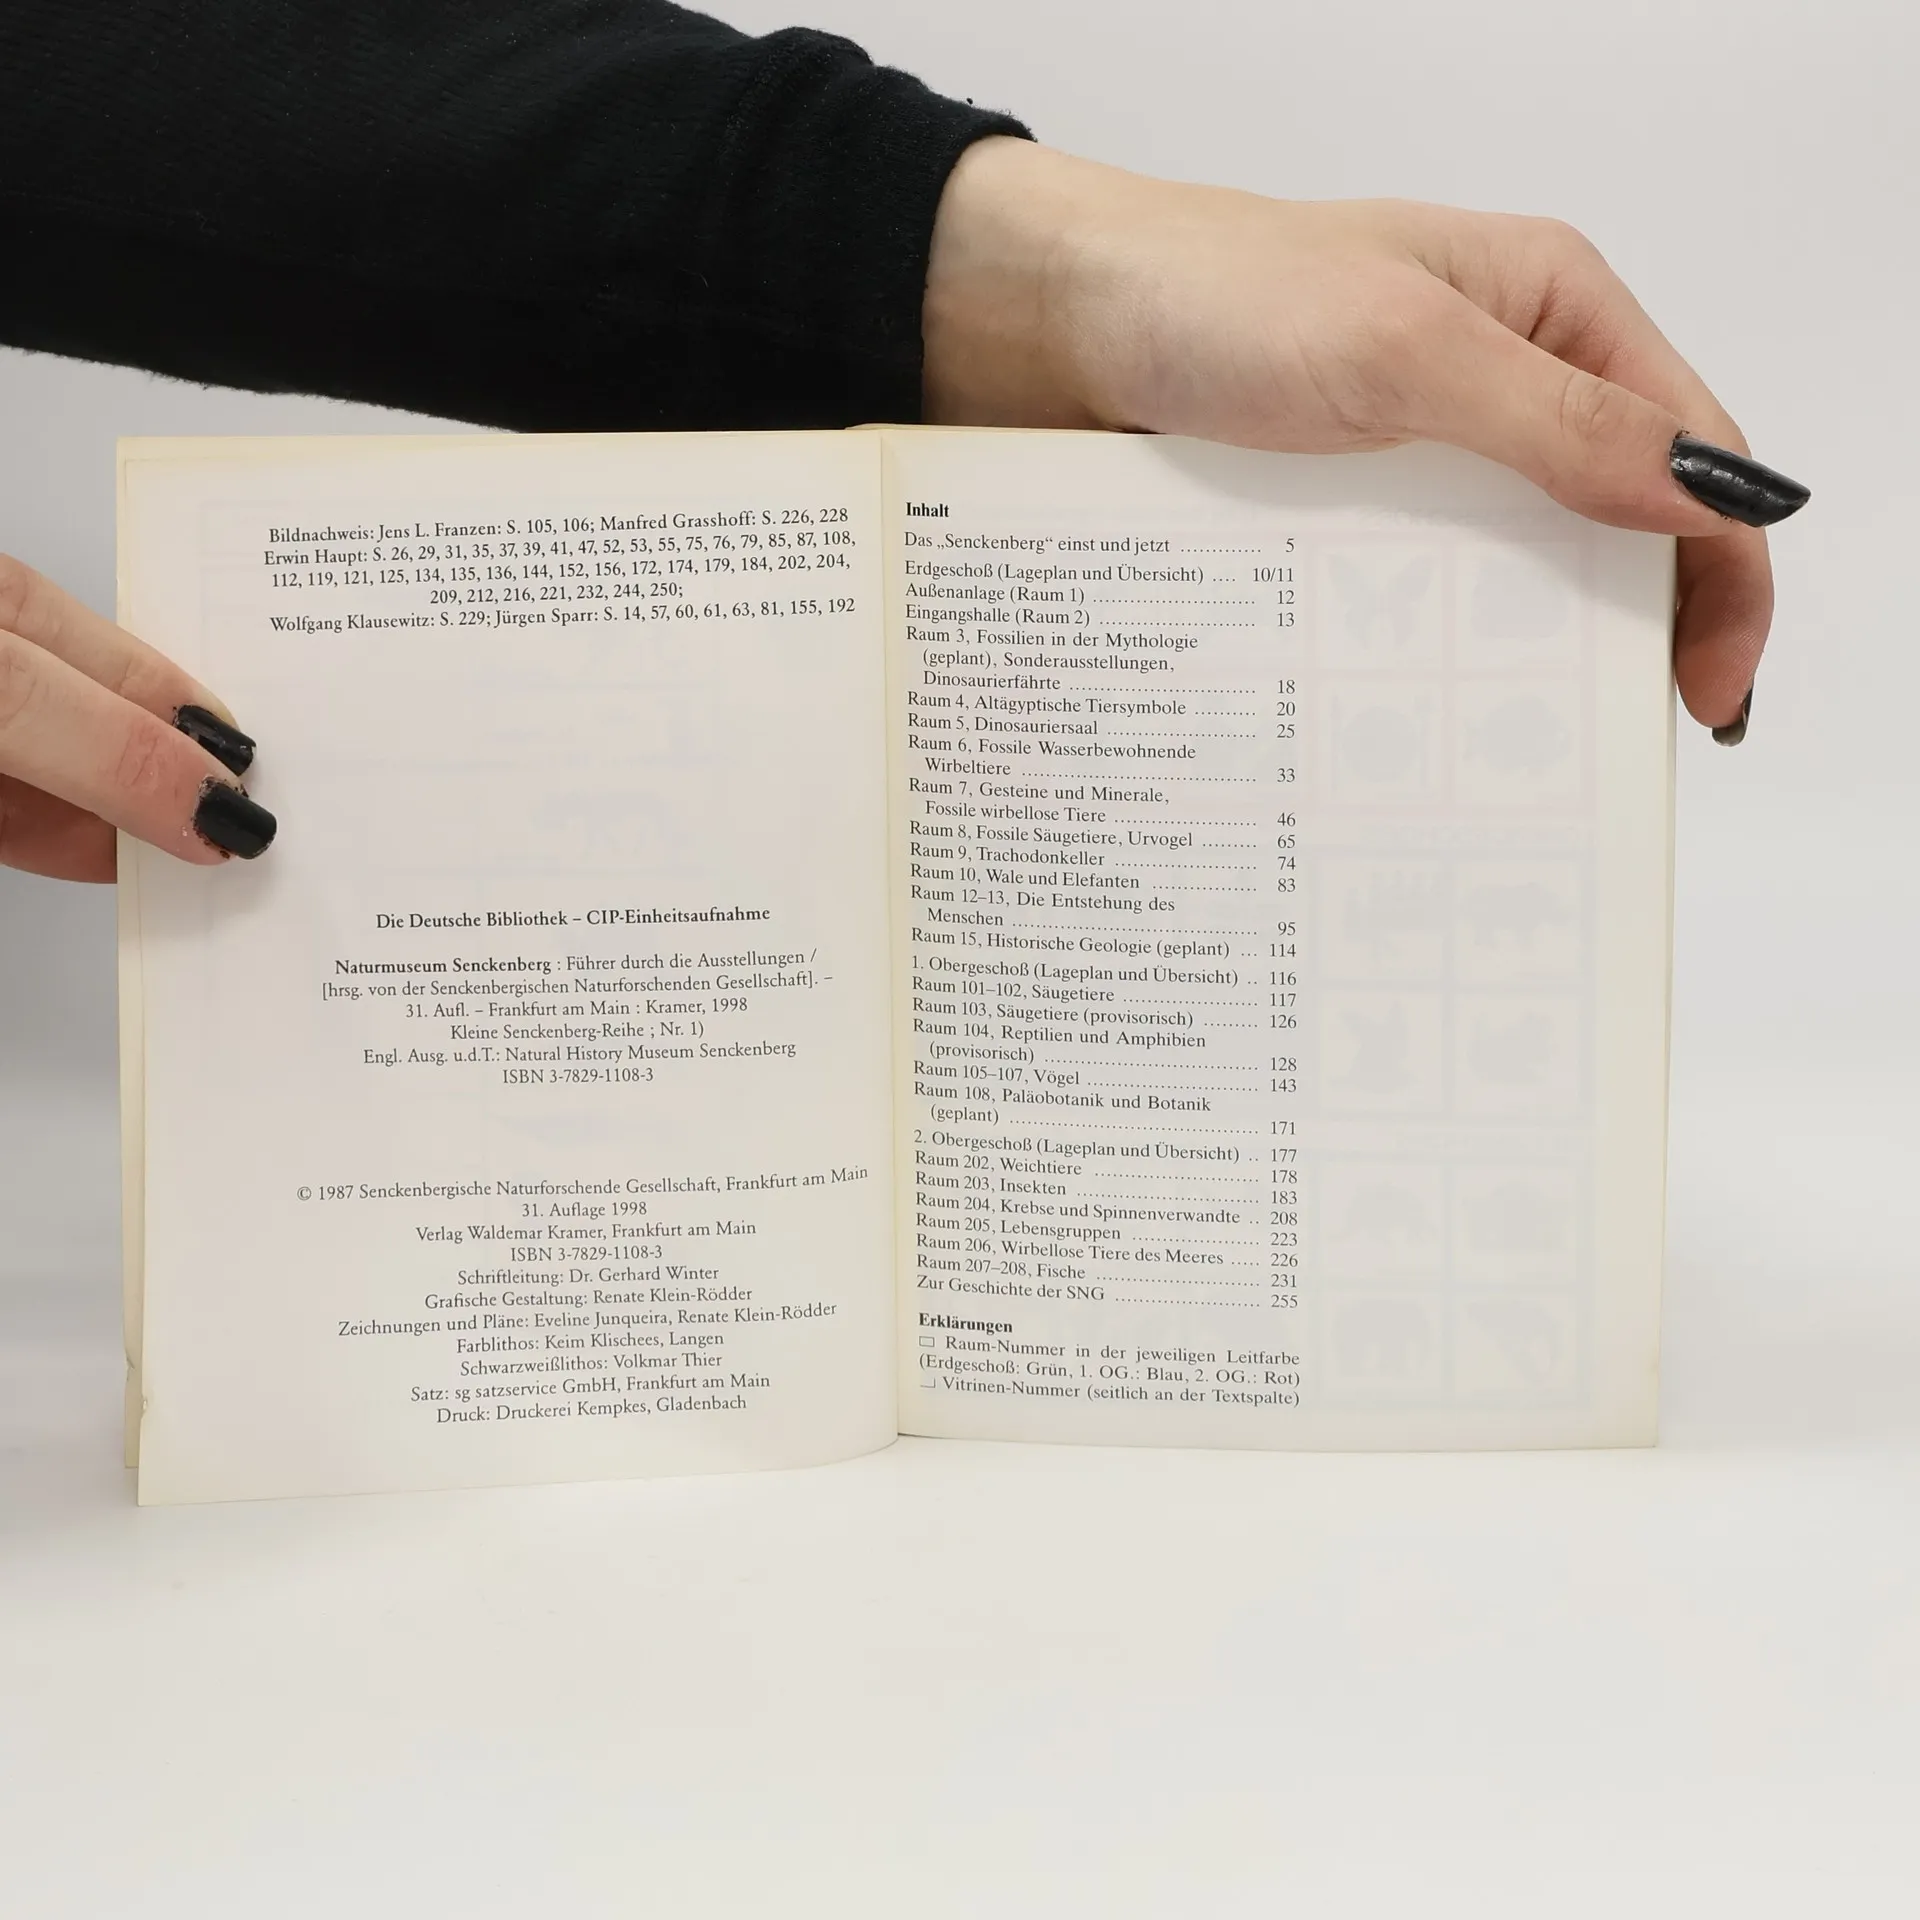 Bildnachweis: Jens L. Franzen: S. 105, 106; Manfred Grasshoff: S. 226, 228
Erwin Haupt: S. 26, 29, 31, 35, 37, 39, 41, 47, 52, 53, 55, 75, 76, 79, 85, 87, 108,
112, 119, 121, 125, 134, 135, 136, 144, 152, 156, 172, 174, 179, 184, 202, 204,
209, 212, 216, 221, 232, 244, 250;
Wolfgang Klausewitz: S. 229; Jürgen Sparr: S. 14, 57, 60, 61, 63, 81, 155, 192
Die Deutsche Bibliothek – CIP-Einheitsaufnahme
Naturmuseum Senckenberg : Führer durch die Ausstellungen /
[hrsg. von der Senckenbergischen Naturforschenden Gesellschaft]. –
31. Aufl. – Frankfurt am Main : Kramer, 1998
Kleine Senckenberg-Reihe ; Nr. 1)
Engl. Ausg. u.d.T.: Natural History Museum Senckenberg
ISBN 3-7829-1108-3
© 1987 Senckenbergische Naturforschende Gesellschaft, Frankfurt am Main
31. Auflage 1998
Verlag Waldemar Kramer, Frankfurt am Main
ISBN 3-7829-1108-3
Schriftleitung: Dr. Gerhard Winter
Grafische Gestaltung: Renate Klein-Rödder
Zeichnungen und Pläne: Eveline Junqueira, Renate Klein-Rödder
Farblithos: Keim Klischees, Langen
Schwarzweißlithos: Volkmar Thier
Satz: sg satzservice GmbH, Frankfurt am Main
Druck: Druckerei Kempkes, Gladenbach
Inhalt
Das „Senckenberg“ einst und jetzt ............. 5
Erdgeschoß (Lageplan und Übersicht) .... 10/11
Außenanlage (Raum 1) ............................ 12
Eingangshalle (Raum 2) ........................... 13
Raum 3, Fossilien in der Mythologie
(geplant), Sonderausstellungen,
Dinosaurierfährte ................................ 18
Raum 4, Altägyptische Tiersymbole .......... 20
Raum 5, Dinosauriersaal .......................... 25
Raum 6, Fossile Wasserbewohnende
Wirbeltiere ........................................ 33
Raum 7, Gesteine und Minerale,
Fossile wirbellose Tiere ........................ 46
Raum 8, Fossile Säugetiere, Urvogel ......... 65
Raum 9, Trachodonkeller ........................ 74
Raum 10, Wale und Elefanten ................. 83
Raum 12–13, Die Entstehung des
Menschen .......................................... 95
Raum 15, Historische Geologie (geplant) ... 114
1. Obergeschoß (Lageplan und Übersicht) .. 116
Raum 101–102, Säugetiere ....................... 117
Raum 103, Säugetiere (provisorisch) ......... 126
Raum 104, Reptilien und Amphibien
(provisorisch) ..................................... 128
Raum 105–107, Vögel ............................. 143
Raum 108, Paläobotanik und Botanik
(geplant) ........................................... 171
2. Obergeschoß (Lageplan und Übersicht) .. 177
Raum 202, Weichtiere ............................ 178
Raum 203, Insekten ............................... 183
Raum 204, Krebse und Spinnenverwandte .. 208
Raum 205, Lebensgruppen ...................... 223
Raum 206, Wirbellose Tiere des Meeres ..... 226
Raum 207–208, Fische ............................ 231
Zur Geschichte der SNG ......................... 255
Erklärungen
Raum-Nummer in der jeweiligen Leitfarbe
(Erdgeschoß: Grün, 1. OG.: Blau, 2. OG.: Rot)
Vitrinen-Nummer (seitlich an der Textspalte)